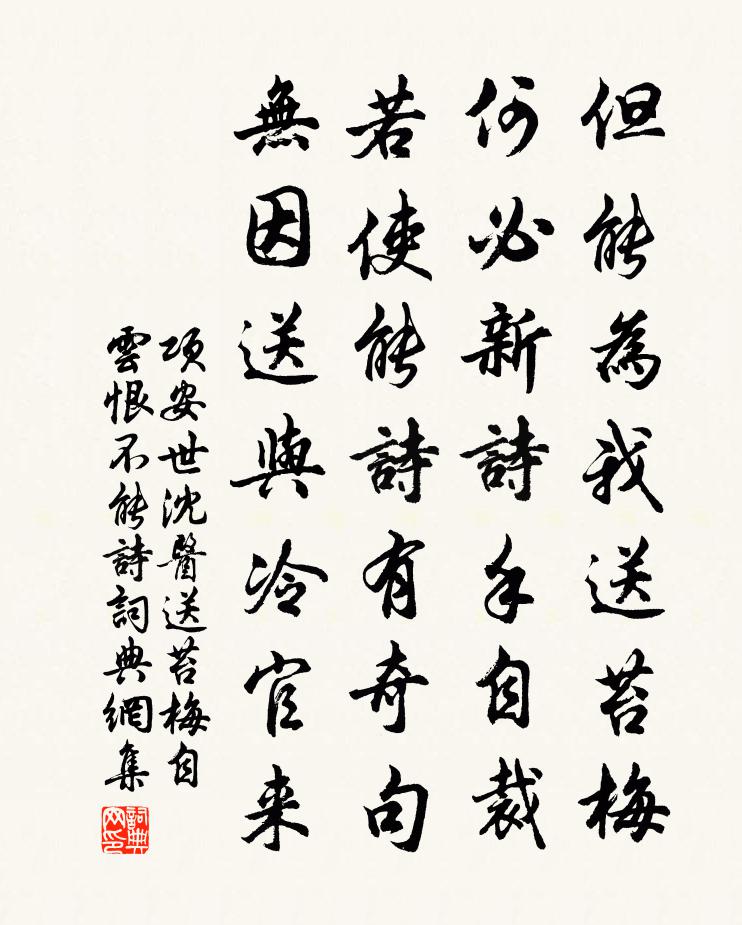 但能為我送苔梅
何必新詩手自裁
若使能詩有奇句
無因送與冷官来
項安世沈醫送苔梅自
雲恨不能詩詞典網集
詞典网印